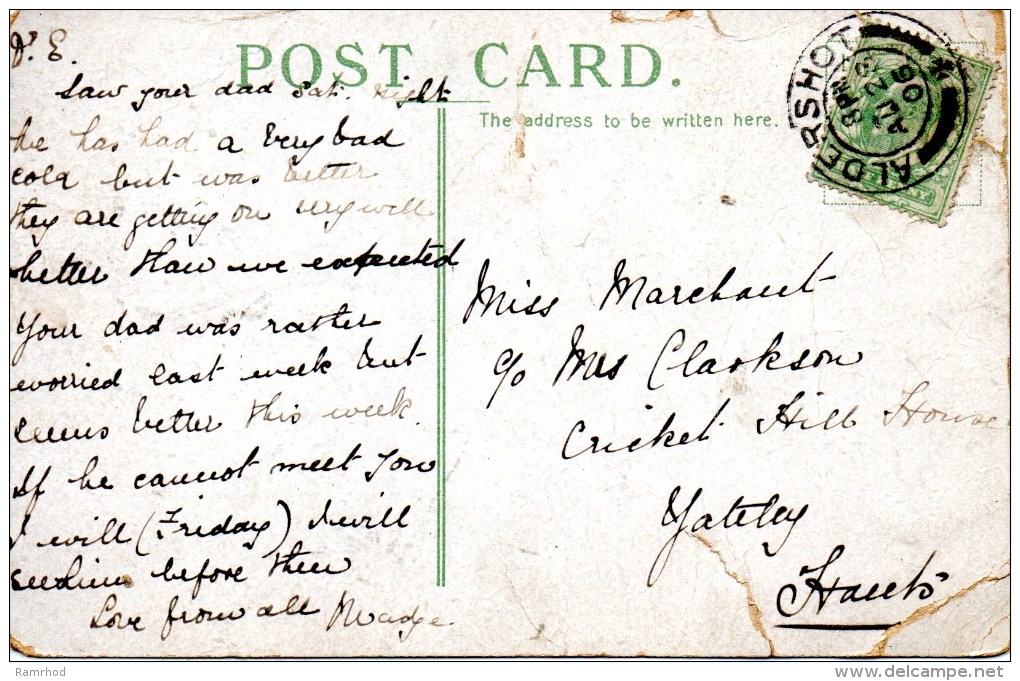 POST CARD.
The address to be written here.
ALDERSHOT
8 PM
AU 2
06
D. E.
Saw your dad Sat. night
he has had a very bad
cold but was better
they are getting on very well
better than we expected
Your dad was rather
worried last week but
seems better this week.
If he cannot meet you
I will (Friday) I will
see him before then
Love from all Madge
Miss Marchant
c/o Mrs Clarkson
Cricket Hill House
Yateley
Hants
Ramrhod
www.delcampe.net